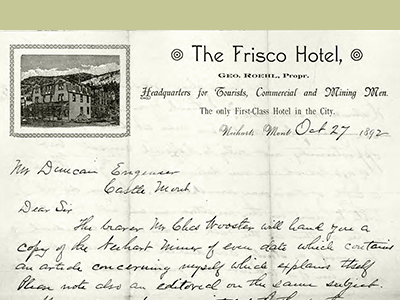 The Frisco Hotel,
Geo. Roehl, Propr.
Headquarters for Tourists, Commercial and Mining Men.
The only First-Class Hotel in the City.
Neihart, Mont Oct 27 1892
Mr Duncan Engineer
Castle Mont
Dear Sir
The bearer Mr Chas Wooster will hand you a
copy of the Neihart Miner of even date which contains
an article concerning myself which explains itself
Please note also an editorial on the same subject.